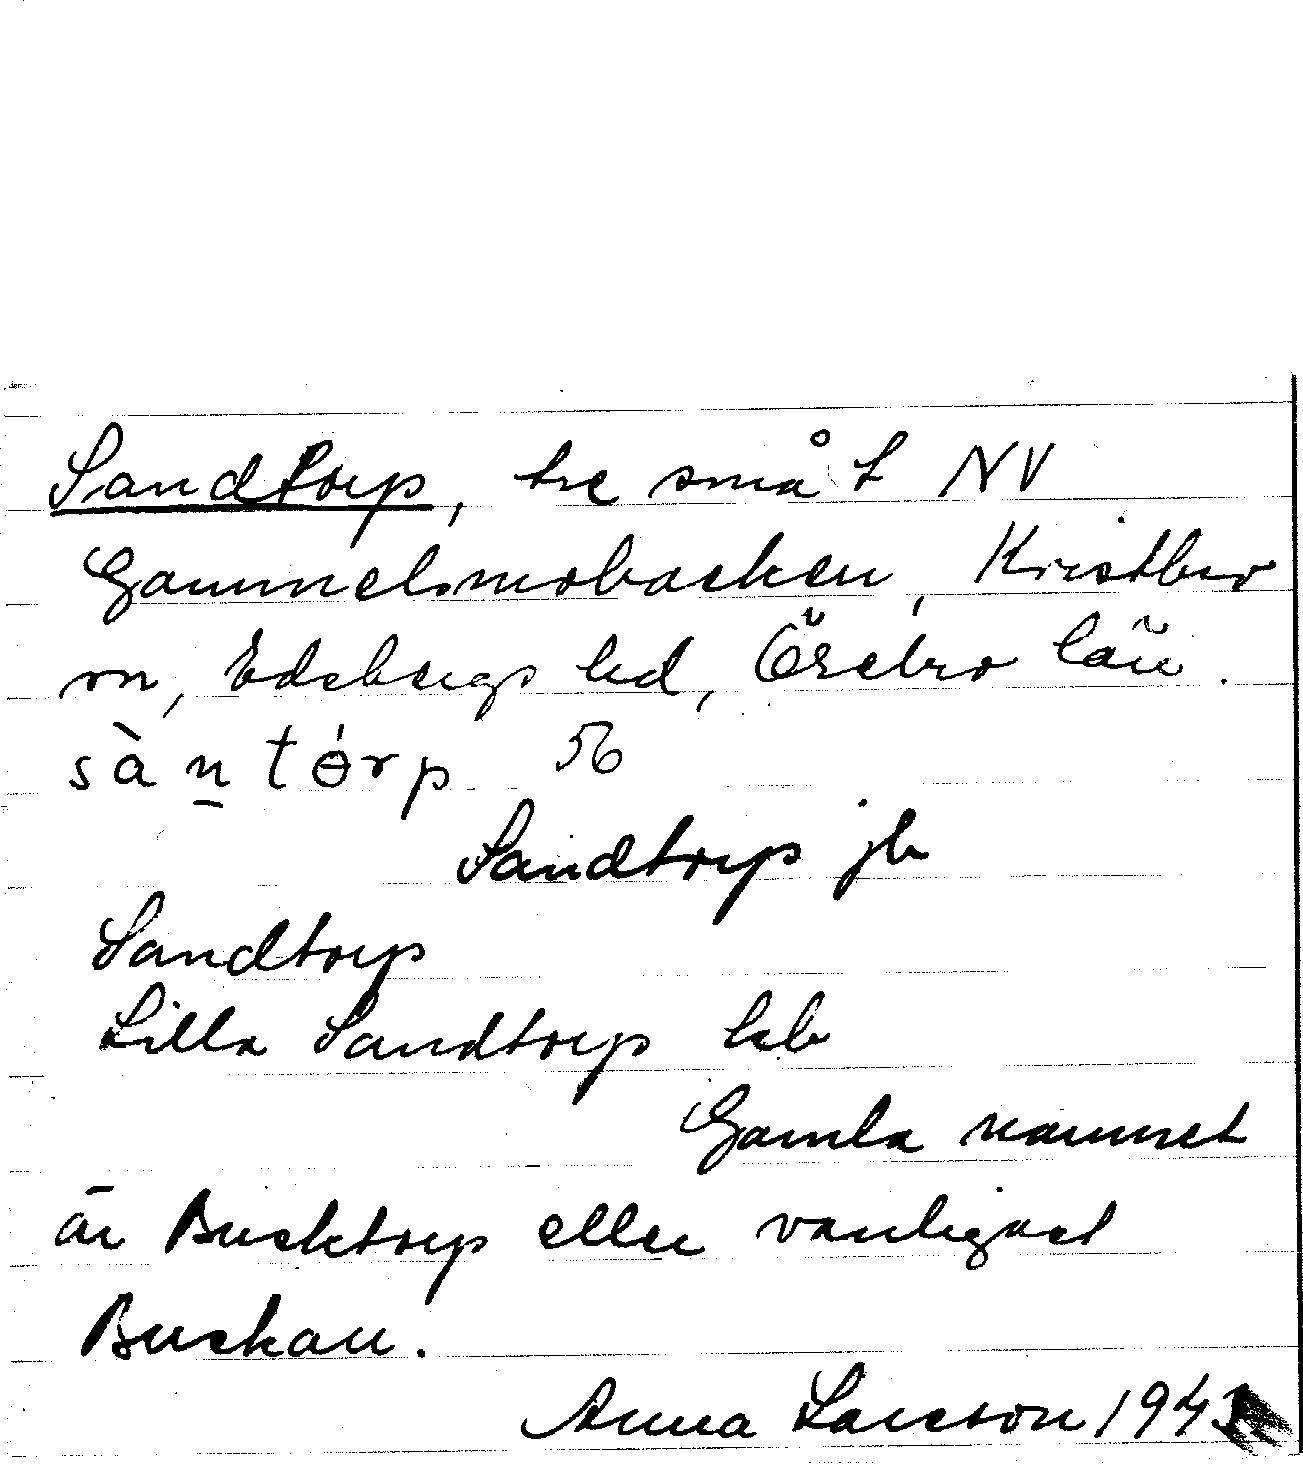 Sandtorp, tre små t NV
Gammelsmobacken, Kristbro
sn, Edsbergs hd, Örebro län.
sàn̲tɵ́rp 56
Sandtorp jb
Sandtorp
Lilla Sandtorp hsb
Gamla namnet
är Busktorp eller vanligast
Buskan.
Anna Larsson